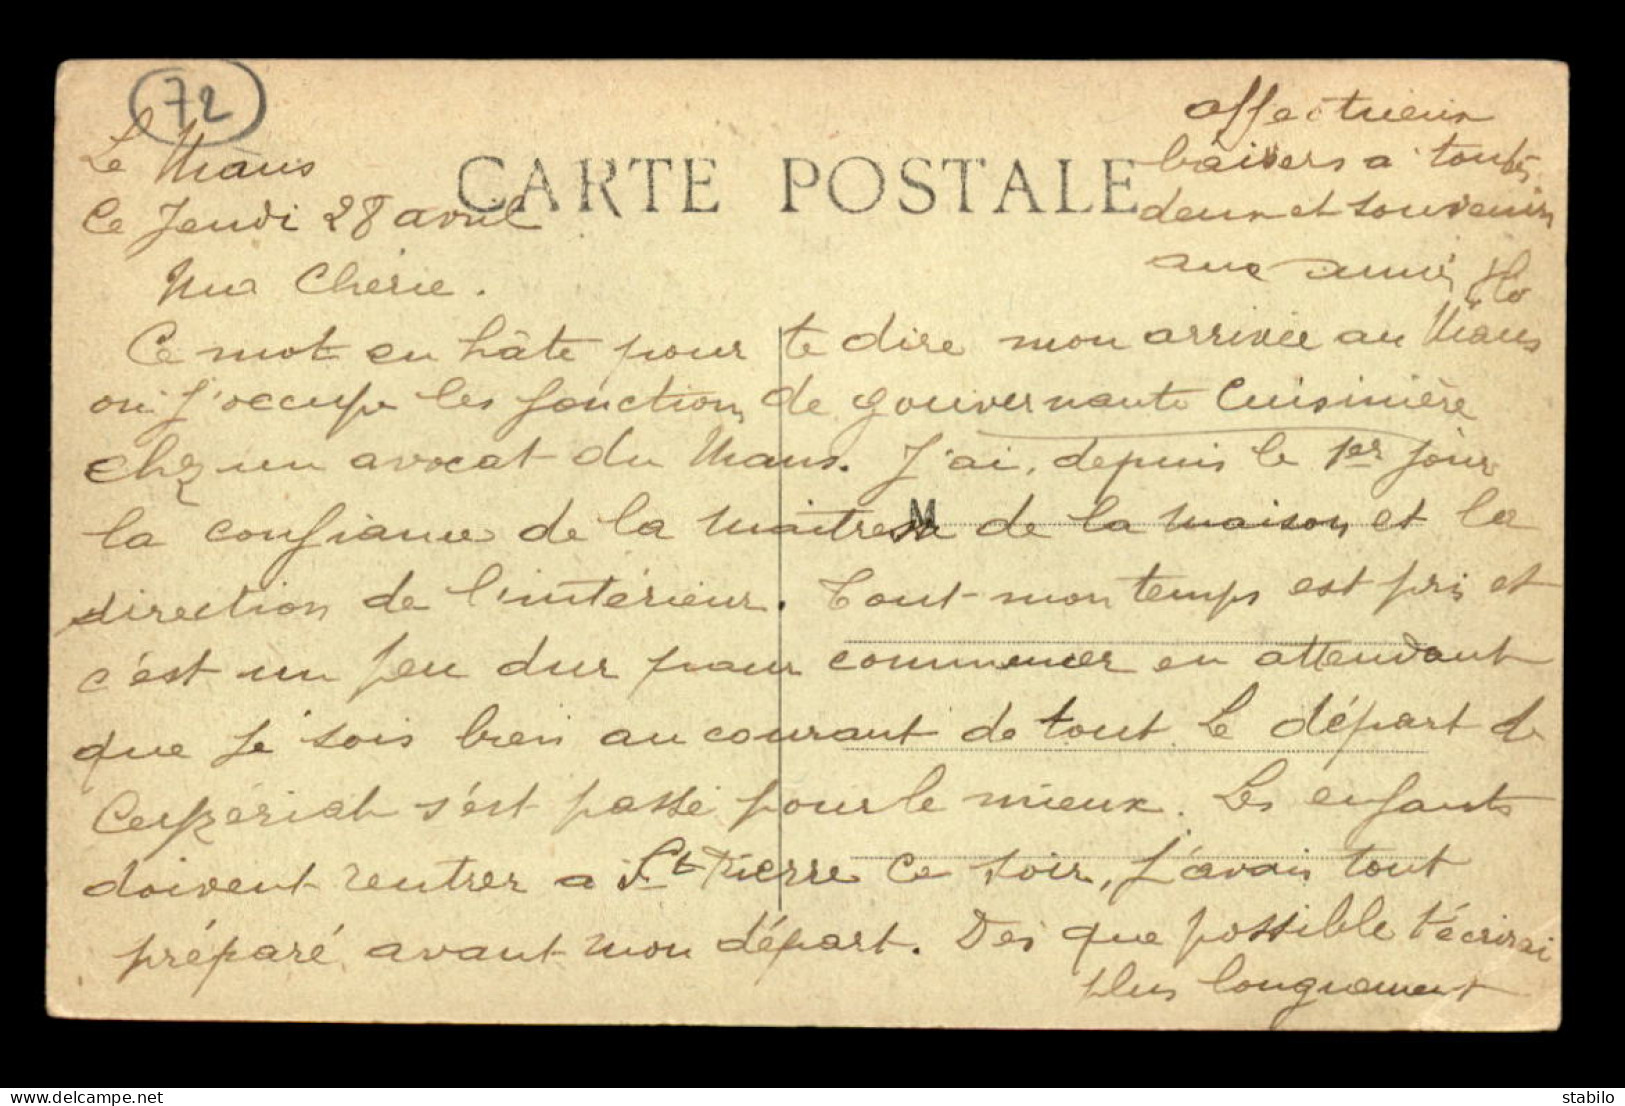 72
Le Mans
Ce Jeudi 28 avril
CARTE POSTALE
affectueux
baisers a toutes
deux et souvenirs
aux amis
Ma Chérie.
Ce mot en hâte pour te dire mon arrivée au Mans
où j'occupe les fonctions de gouvernante Cuisinière
chez un avocat du Mans. J'ai, depuis le 1er jour
la confiance de la Maitresse de la Maison, et la
M
direction de l'intérieur. Tout mon temps est pris et
c'est un peu dur pour commencer en attendant
que je sois bien au courant de tout. Le départ de
s'est passé pour le mieux. Les enfants
doivent rentrer a St Pierre ce soir, j'avais tout
préparé avant mon départ. Dès que possible t'écrirai
plus longuement
delcampe.net
stabilo